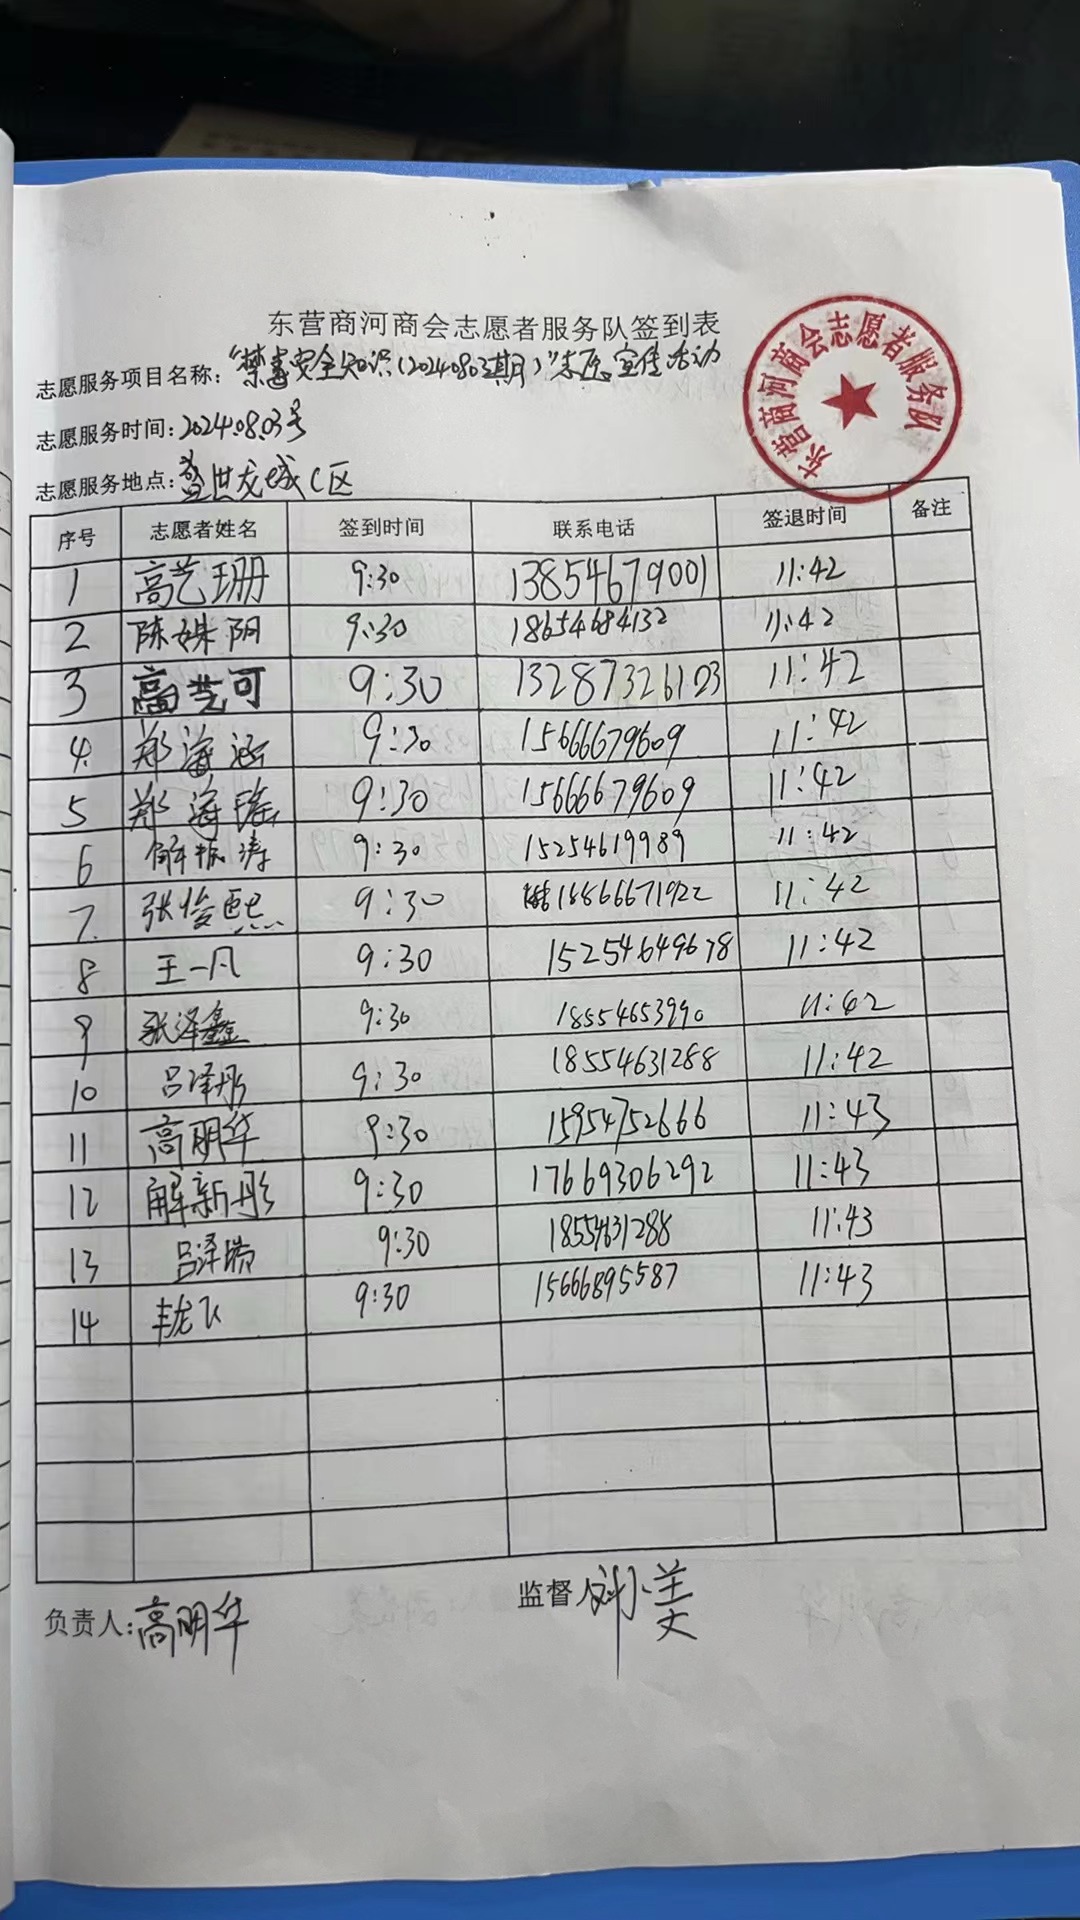 东营商河商会志愿者服务队签到表
东营商河商会志愿者服务队
志愿服务项目名称:"禁毒安全知识(20240803期)"志愿宣传活动
志愿服务时间:2024.08.03号
志愿服务地点:盛世龙城C区
序号 志愿者姓名 签到时间 联系电话 签退时间 备注
1 高艺珊 9:30 13854679001 11:42
2 陈姝阴 9:30 18654684132 11:42
3 高艺可 9:30 13287326123 11:42
4. 郑海涵 9:30 15666679609 11:42
5 郑海瑶 9:30 15666679609 11:42
6 解振涛 9:30 15254619989 11:42
7. 张俊熙 9:30 18866671922 11:42
8 王一凡 9:30 15254649678 11:42
9 张泽鑫 9:30 18554653990 11:42
10 吕泽彤 9:30 18554631288 11:42
11 高明华 9:30 15954752666 11:43
12 解新彤 9:30 17669306292 11:43
13 吕泽瑞 9:30 18554631288 11:43
14 龙飞 9:30 15666895587 11:43
负责人:高明华
监督人刘小美